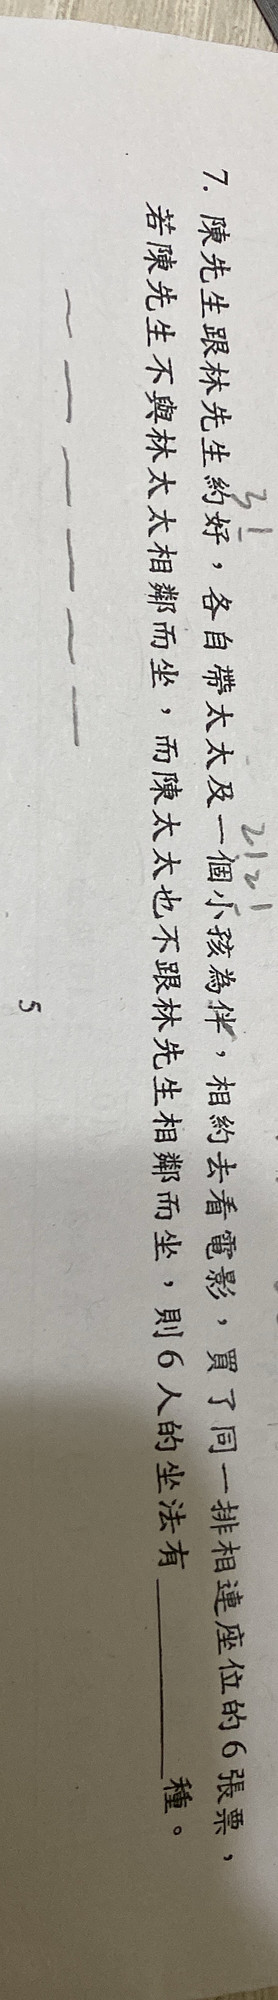 7. 陳先生跟林先生約好，各自帶太太及一個小孩為伴，相約去看電影，買了同一排相連座位的6張票，
若陳先生不與林太太相鄰而坐，而陳太太也不跟林先生相鄰而坐，則6人的坐法有______種。
3!
2!2!
5